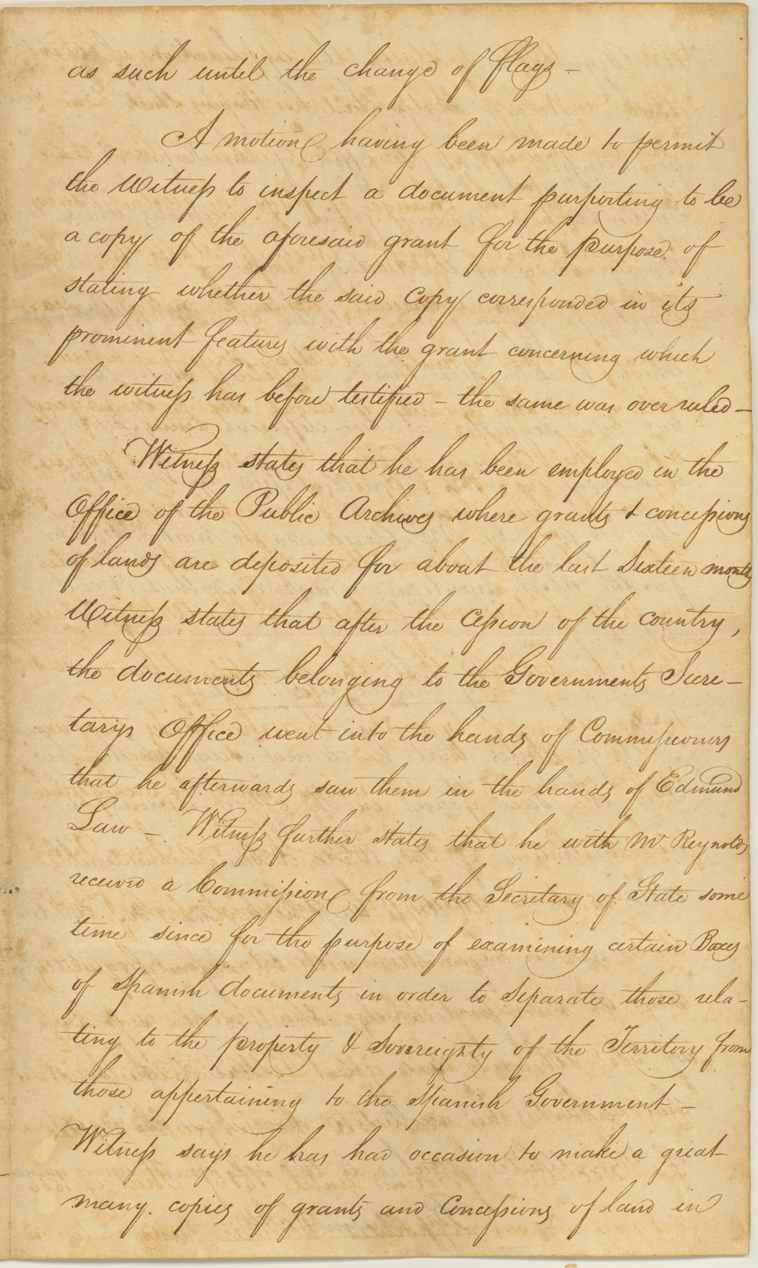 as such until the change of flags –
A motion having been made to permit
the Witness to inspect a document purporting to be
a copy of the aforesaid grant for the purpose of
stating whether the said copy corresponded in its
prominent features with the grant concerning which
the witness has before testified – the same was over ruled –
Witness states that he has been employed in the
Office of the Public Archives where grants & concessions
of lands are deposited for about the last Sixteen months
Witness states that after the Cession of the country,
the documents belonging to the Governments Secre-
tarys Office went into the hands of Commissioners
that he afterwards saw them in the hands of Edmund
Law – Witness further states that he with Mr Reynolds
received a Commission from the Secretary of State some
time since for the purpose of examining certain Boxes
of Spanish documents in order to separate those rela-
ting to the property & Sovereignty of the Territory from
those appertaining to the Spanish Government –
Witness says he has had occasion to make a great
many. copies of grants and Concessions of land in